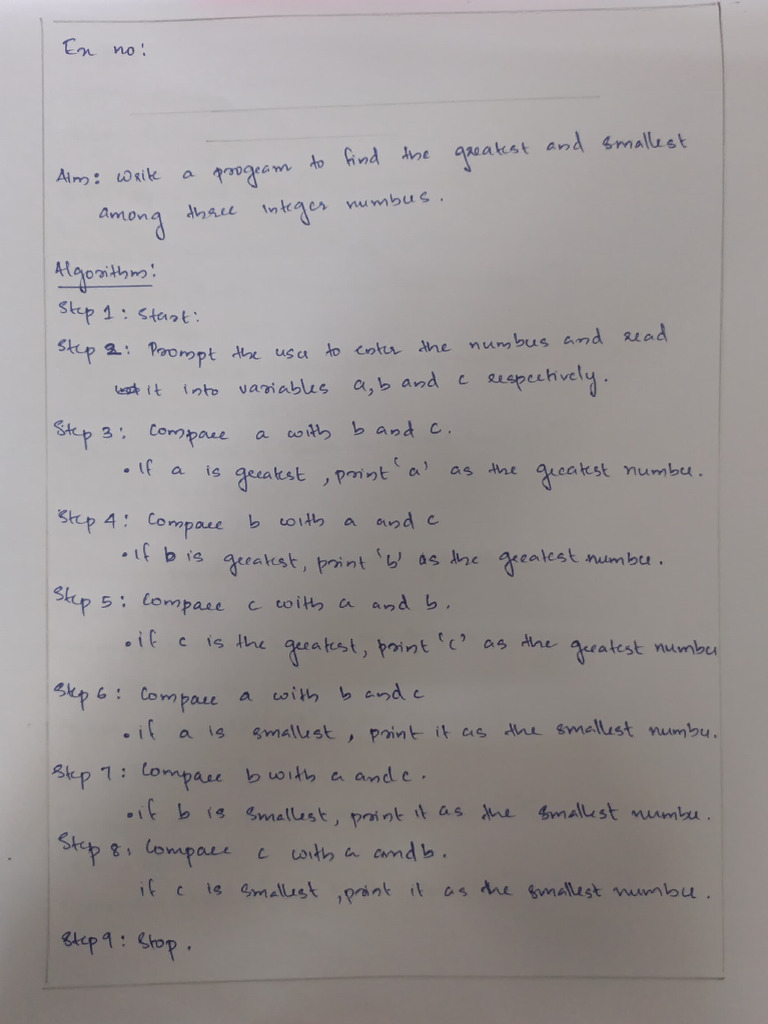 Ex no:
Aim: Write a program to find the greatest and smallest
among three integer numbers.
Algorithm:
Step 1: Start:
Step 2: Prompt the user to enter the numbers and read
it into variables a, b and c respectively.
Step 3: Compare a with b and c.
• If a is greatest, print 'a' as the greatest number.
Step 4: Compare b with a and c
• If b is greatest, print 'b' as the greatest number.
Step 5: Compare c with a and b.
• if c is the greatest, print 'c' as the greatest number
Step 6: Compare a with b and c
• if a is smallest, print it as the smallest number.
Step 7: Compare b with a and c.
• if b is smallest, print it as the smallest number.
Step 8: Compare c with a and b.
if c is smallest, print it as the smallest number.
Step 9: Stop.